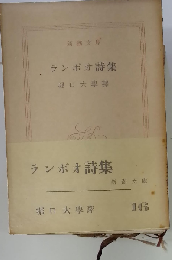 ランボオ詩集
堀口大學譯
ランボオ詩集
堀口大學譯
146